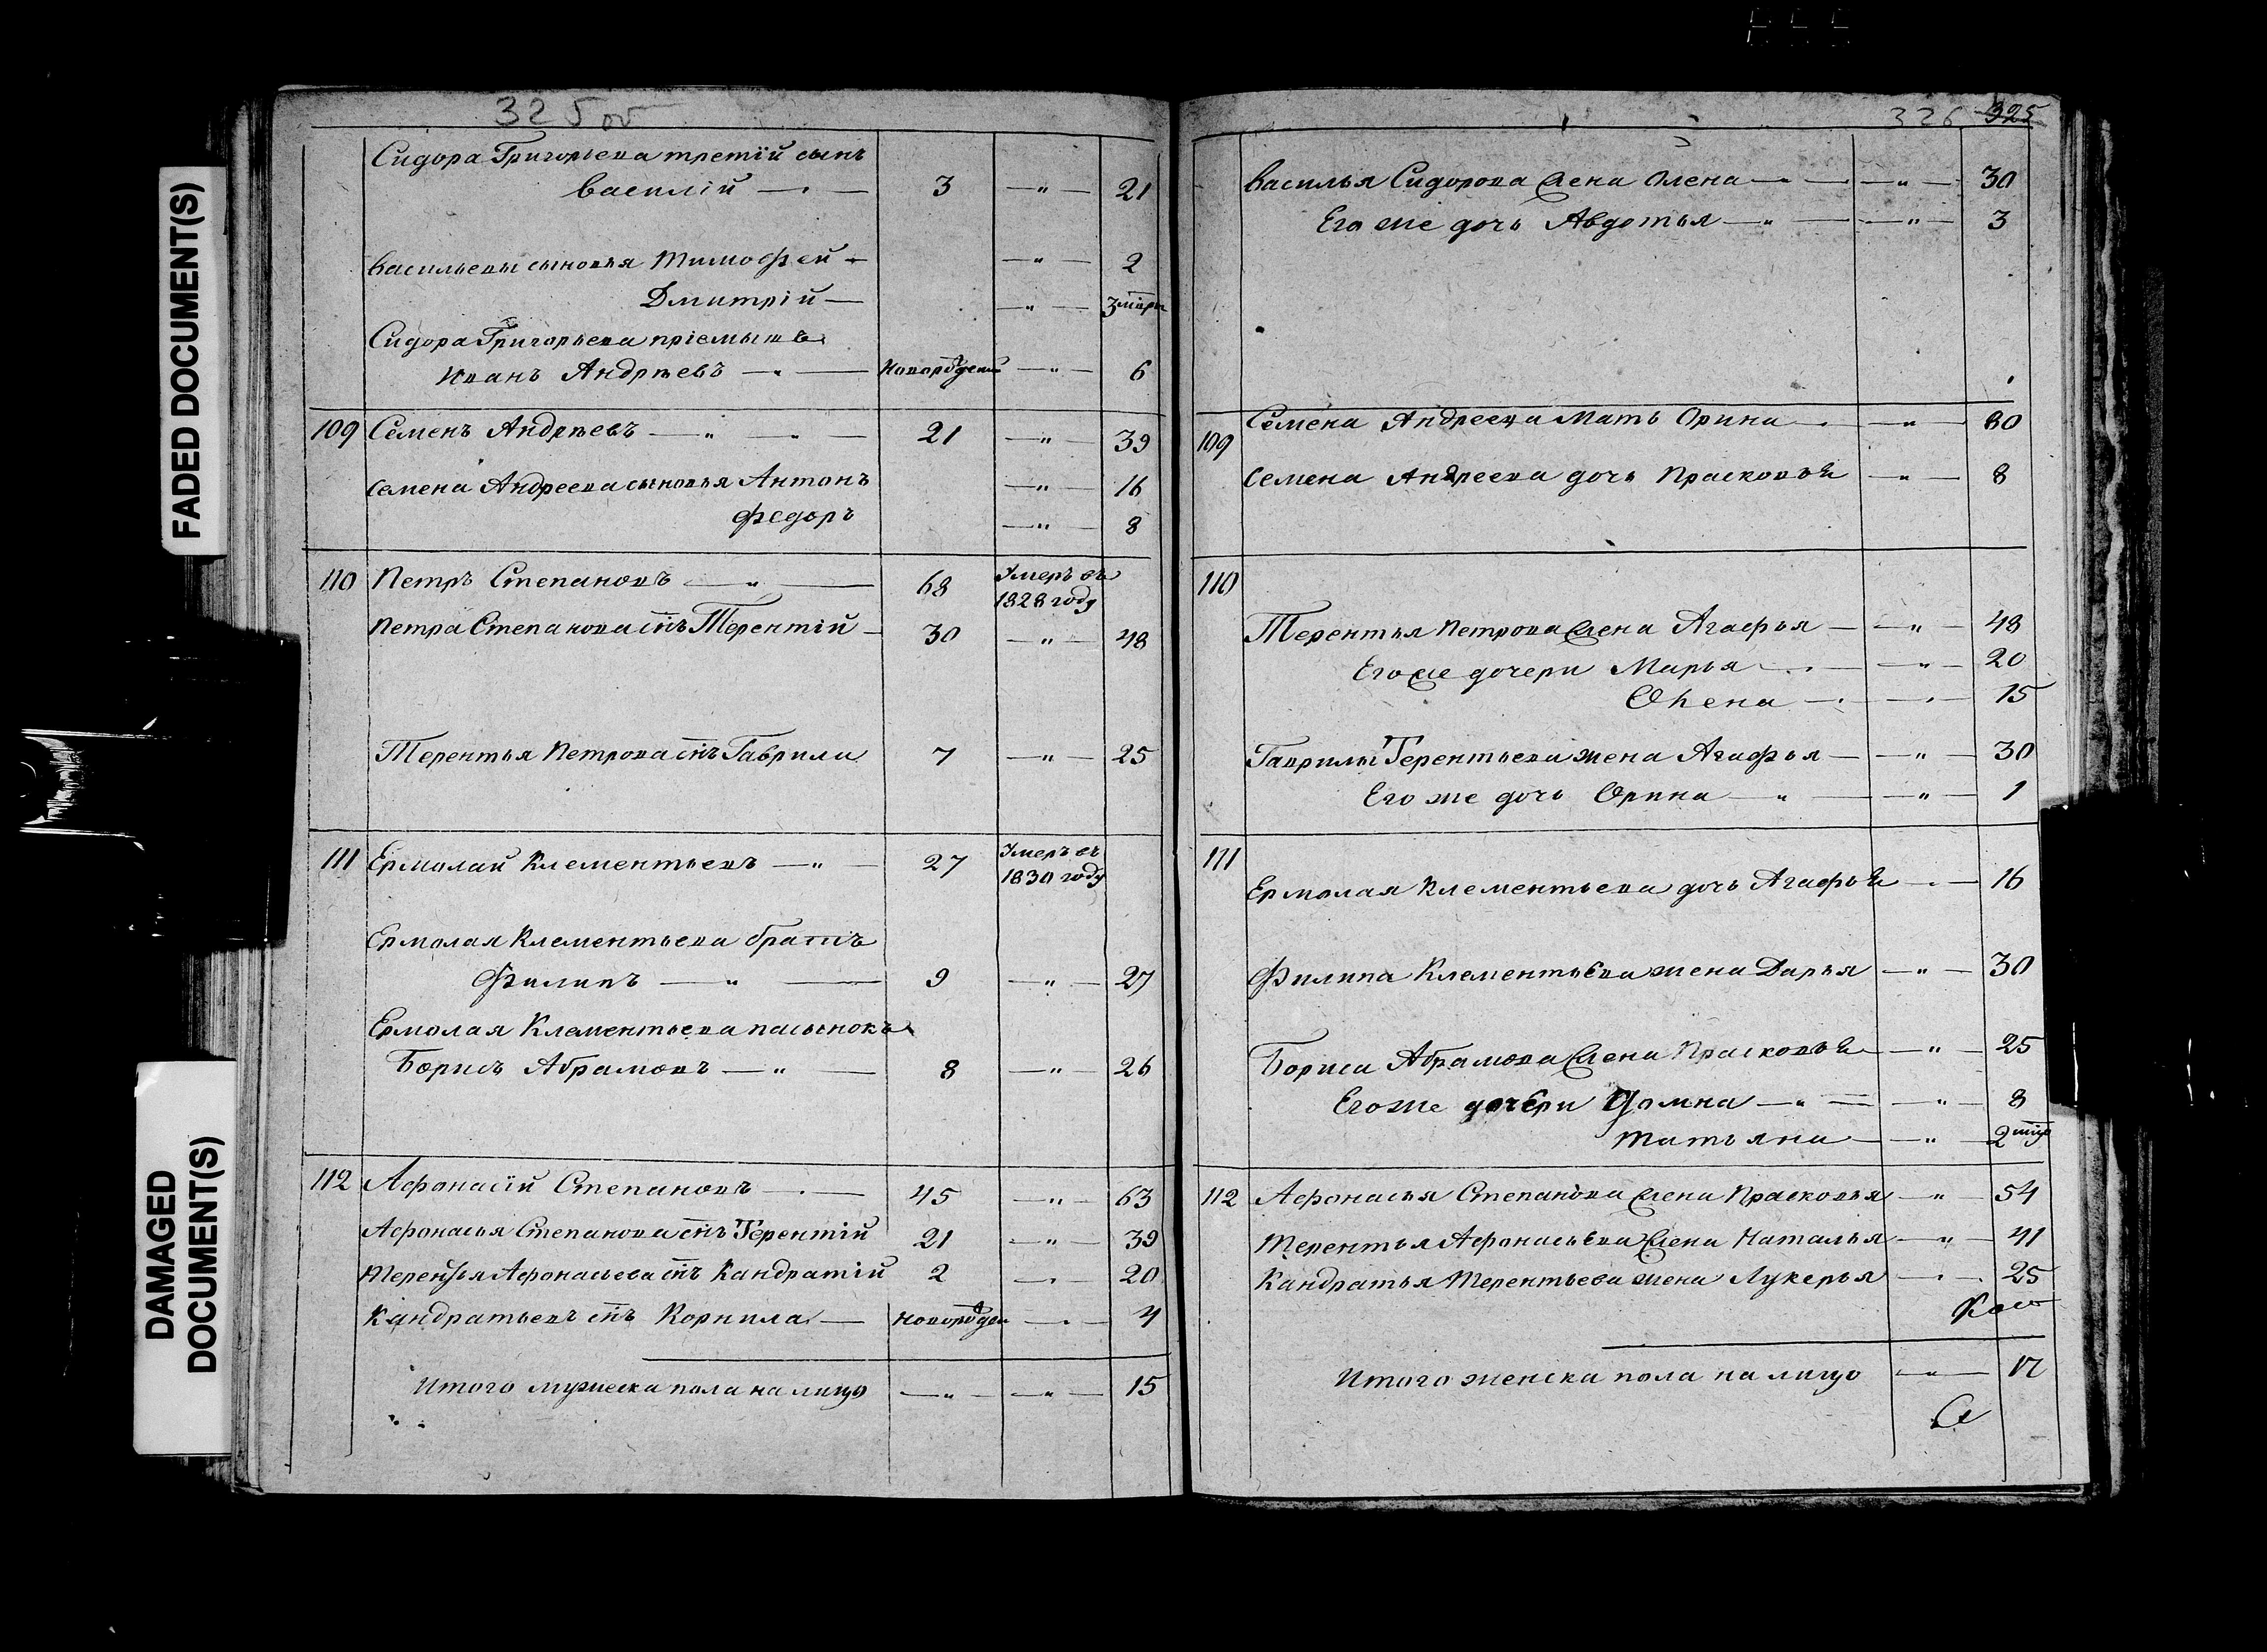 FADED DOCUMENT(S)
DAMAGED
DOCUMENT(S)
325 об
Сидора Григорьева третій сынъ
Василій — 3 — " — 21
Васильевы сыновья Тимофей — " — 2
Дмитрій — " — 3
Сидора Григорьева пріемышъ
Иванъ Андрѣевъ — — " — 6
109 Семенъ Андрѣевъ — " — " — 21 — " — 39
Семена Андреева сыновья Антонъ — " — 16
Федоръ — " — 8
110 Петръ Степановъ — " — 68 Умеръ въ
1828 году
Петра Степанова снъ Терентій — 30 — " — 48
Терентья Петрова снъ Гаврила 7 — " — 25
111 Ермолай Клементьевъ — " — 27 Умеръ въ
1830 году
Ермолая Клементьева братъ
Филипъ — " — 9 — " — 27
Ермолая Клементьева пасынокъ
Борисъ Абрамовъ — " — 8 — " — 26
112 Афонасій Степановъ — 45 — " — 63
Афонасья Степанова снъ Терентій 21 — " — 39
Терентья Афонасьева снъ Кандратій 2 — " — 20
Кандратьевъ снъ Корнила — — " — 4
Итого мужеска пола на лицо — " — " — 15
326 325
Василья Сидорова жена Олена — " — 30
Его же дочь Авдотья — " — " — 3
109 Семена Андреева мать Орина — " — 80
Семена Андреева дочь Прасковья — " — 8
110
Терентья Петрова жена Агафья — " — 48
Его же дочери Марья — " — 20
Олена — " — 15
Гаврилы Терентьева жена Агафья — " — 30
Его же дочь Орина — " — " — 1
111
Ермолая Клементьева дочь Агафья — " — 16
Филипа Клементьева жена Дарья — " — 30
Бориса Абрамова жена Прасковья — " — 25
Его же дочери Домна — " — " — 8
Татьяна — " — 2
112 Афонасья Степанова жена Прасковья — " — 54
Терентья Афонасьева жена Наталья — " — 41
Кандратья Терентьева жена Лукерья — " — 25
Итого женска пола на лицо — " — 17